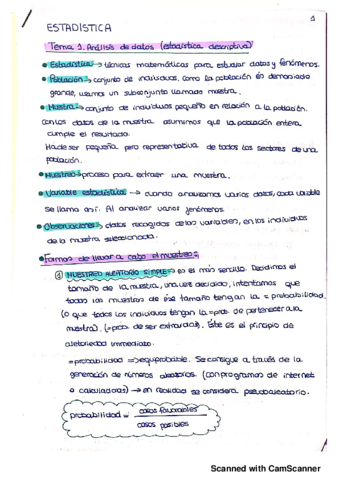 1
ESTADÍSTICA
Tema 1. Análisis de datos (estadística descriptiva)
• Estadística → técnicas matemáticas para estudiar datos y fenómenos.
• Población → conjunto de individuos, como la población es demasiado
grande, usamos un subconjunto llamado muestra.
• Muestra → conjunto de individuos pequeño en relación a la población.
Con los datos de la muestra asumimos que la población entera
cumple el resultado.
Ha de ser pequeña pero representativa de todos los sectores de una
población.
• Muestreo → proceso para extraer una muestra.
• Variable estadística → cuando analizamos varios datos, cada variable
se llama así. Al analizar varios fenómenos.
• Observaciones → datos recogidos de las variables, en los individuos
de la muestra seleccionada.
• Formas de llevar a cabo el muestreo:
① MUESTREO ALEATORIO SIMPLE → es el más sencillo. Decidimos el
tamaño de la muestra, una vez decidido, intentamos que
todas las muestras de ese tamaño tengan la = probabilidad.
(o que todos los individuos tengan la = prob. de pertenecer a la
muestra). (= prob. de ser extraídas). Este es el principio de
aletoriedad
= probabilidad => equiprobable. Se consigue a través de la
generación de números aleatorios. (con programas de internet
o calculadoras) → en realidad se considera pseudoaleatorio.
probabilidad = casos favorables
casos posibles
Scanned with CamScanner